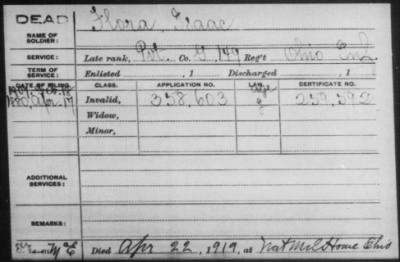 DEAD
Flora, Isaac
NAME OF
SOLDIER:
SERVICE:
Late rank, Pvt. Co. G, 149 Reg't Ohio Inf.
TERM OF
SERVICE:
Enlisted , 1 Discharged , 1
DATE OF FILING. CLASS. APPLICATION NO. LAW. CERTIFICATE NO.
1880, Apr. 17 Invalid, 358,603 239,392
Widow,
Minor,
ADDITIONAL
SERVICES:
REMARKS:
Died Apr 22, 1919, at Nat Mil Home Ohio